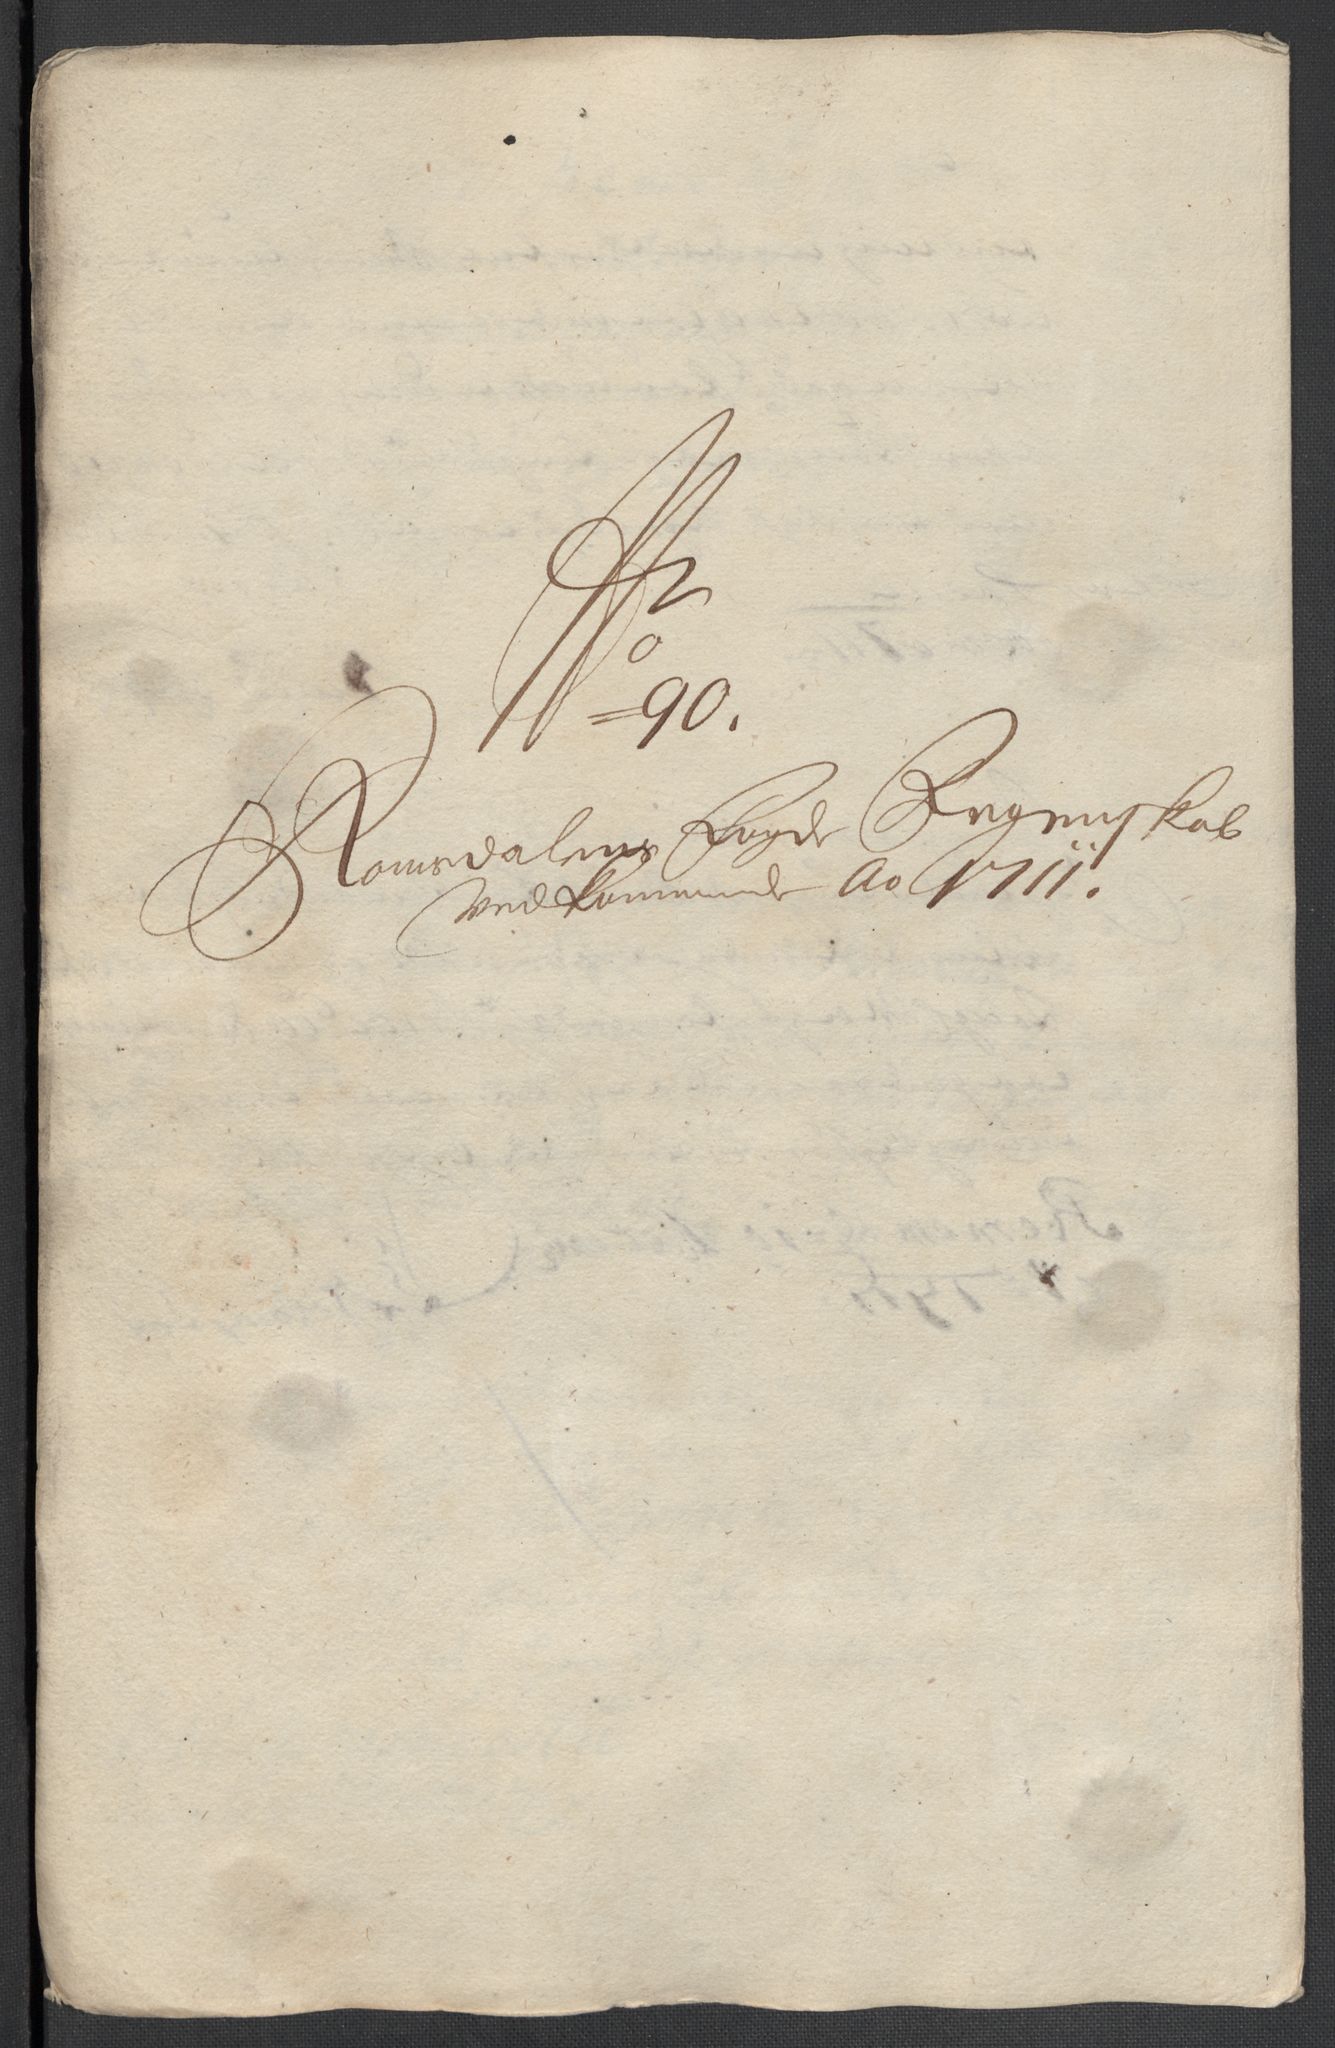 No
=90.
Romsdalens Fogde Regenskab
Vedkommende Ao 1711.